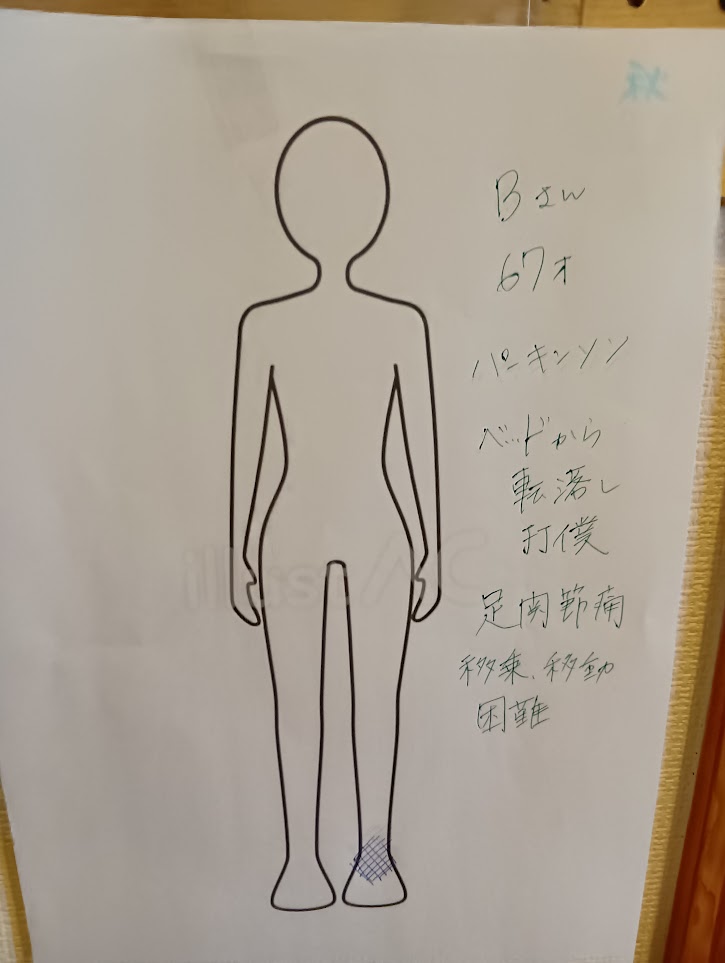 Bさん
67才
パーキンソン
ベッドから
転落し
打僕
足関節痛
移乗、移動
困難
illustAC